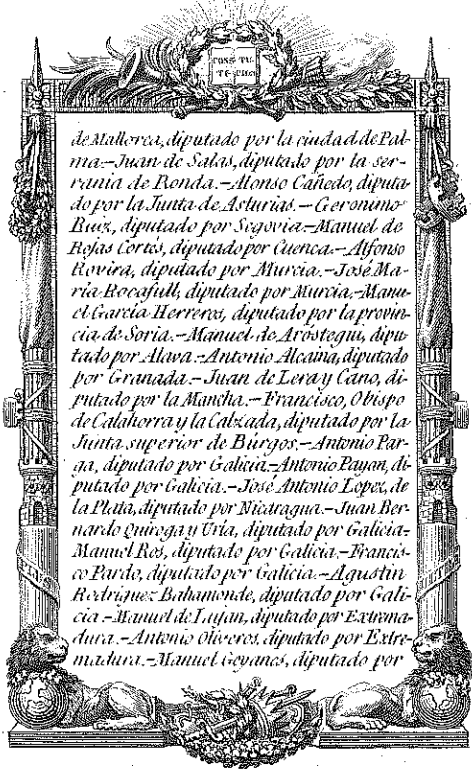 CONS TI TU
TE CION
de Mallorca, diputado por la ciudad de Pal-
ma.-Juan de Salas, diputado por la ser-
rania de Ronda.-Alonso Cañedo, diputa-
do por la Junta de Asturias.-Geronimo
Ruiz, diputado por Segovia-Manuel de
Rojas Cortés, diputado por Cuenca.-Alfonso
Rovira, diputado por Murcia.-José Ma-
ría Rocafull, diputado por Murcia,-Manu-
el García Herreros, diputado por la provin-
cia de Soria.-Manuel de Aróstegui, dipu-
tado por Alava.-Antonio Alcaina, diputado
por Granada.-Juan de Lera y Cano, di-
putado por la Mancha.-Francisco, Obispo
de Calahorra y la Calzada, diputado por la
Junta superior de Búrgos.-Antonio Par-
ga, diputado por Galicia.-Antonio Payan, di-
putado por Galicia.-José Antonio Lopez, de
la Plata, diputado por Nicaragua.-Juan Ber-
nardo Quiroga y Uría, diputado por Galicia-
Manuel Ros, diputado por Galicia.-Francis-
co Pardo, diputado por Galicia.-Agustin
Rodriguez Bahamonde, diputado por Gali-
cia.-Manuel de Lujan, diputado por Extrema-
dura.-Antonio Oliveros, diputado por Extre-
madura.-Manuel Goyanes, diputado por